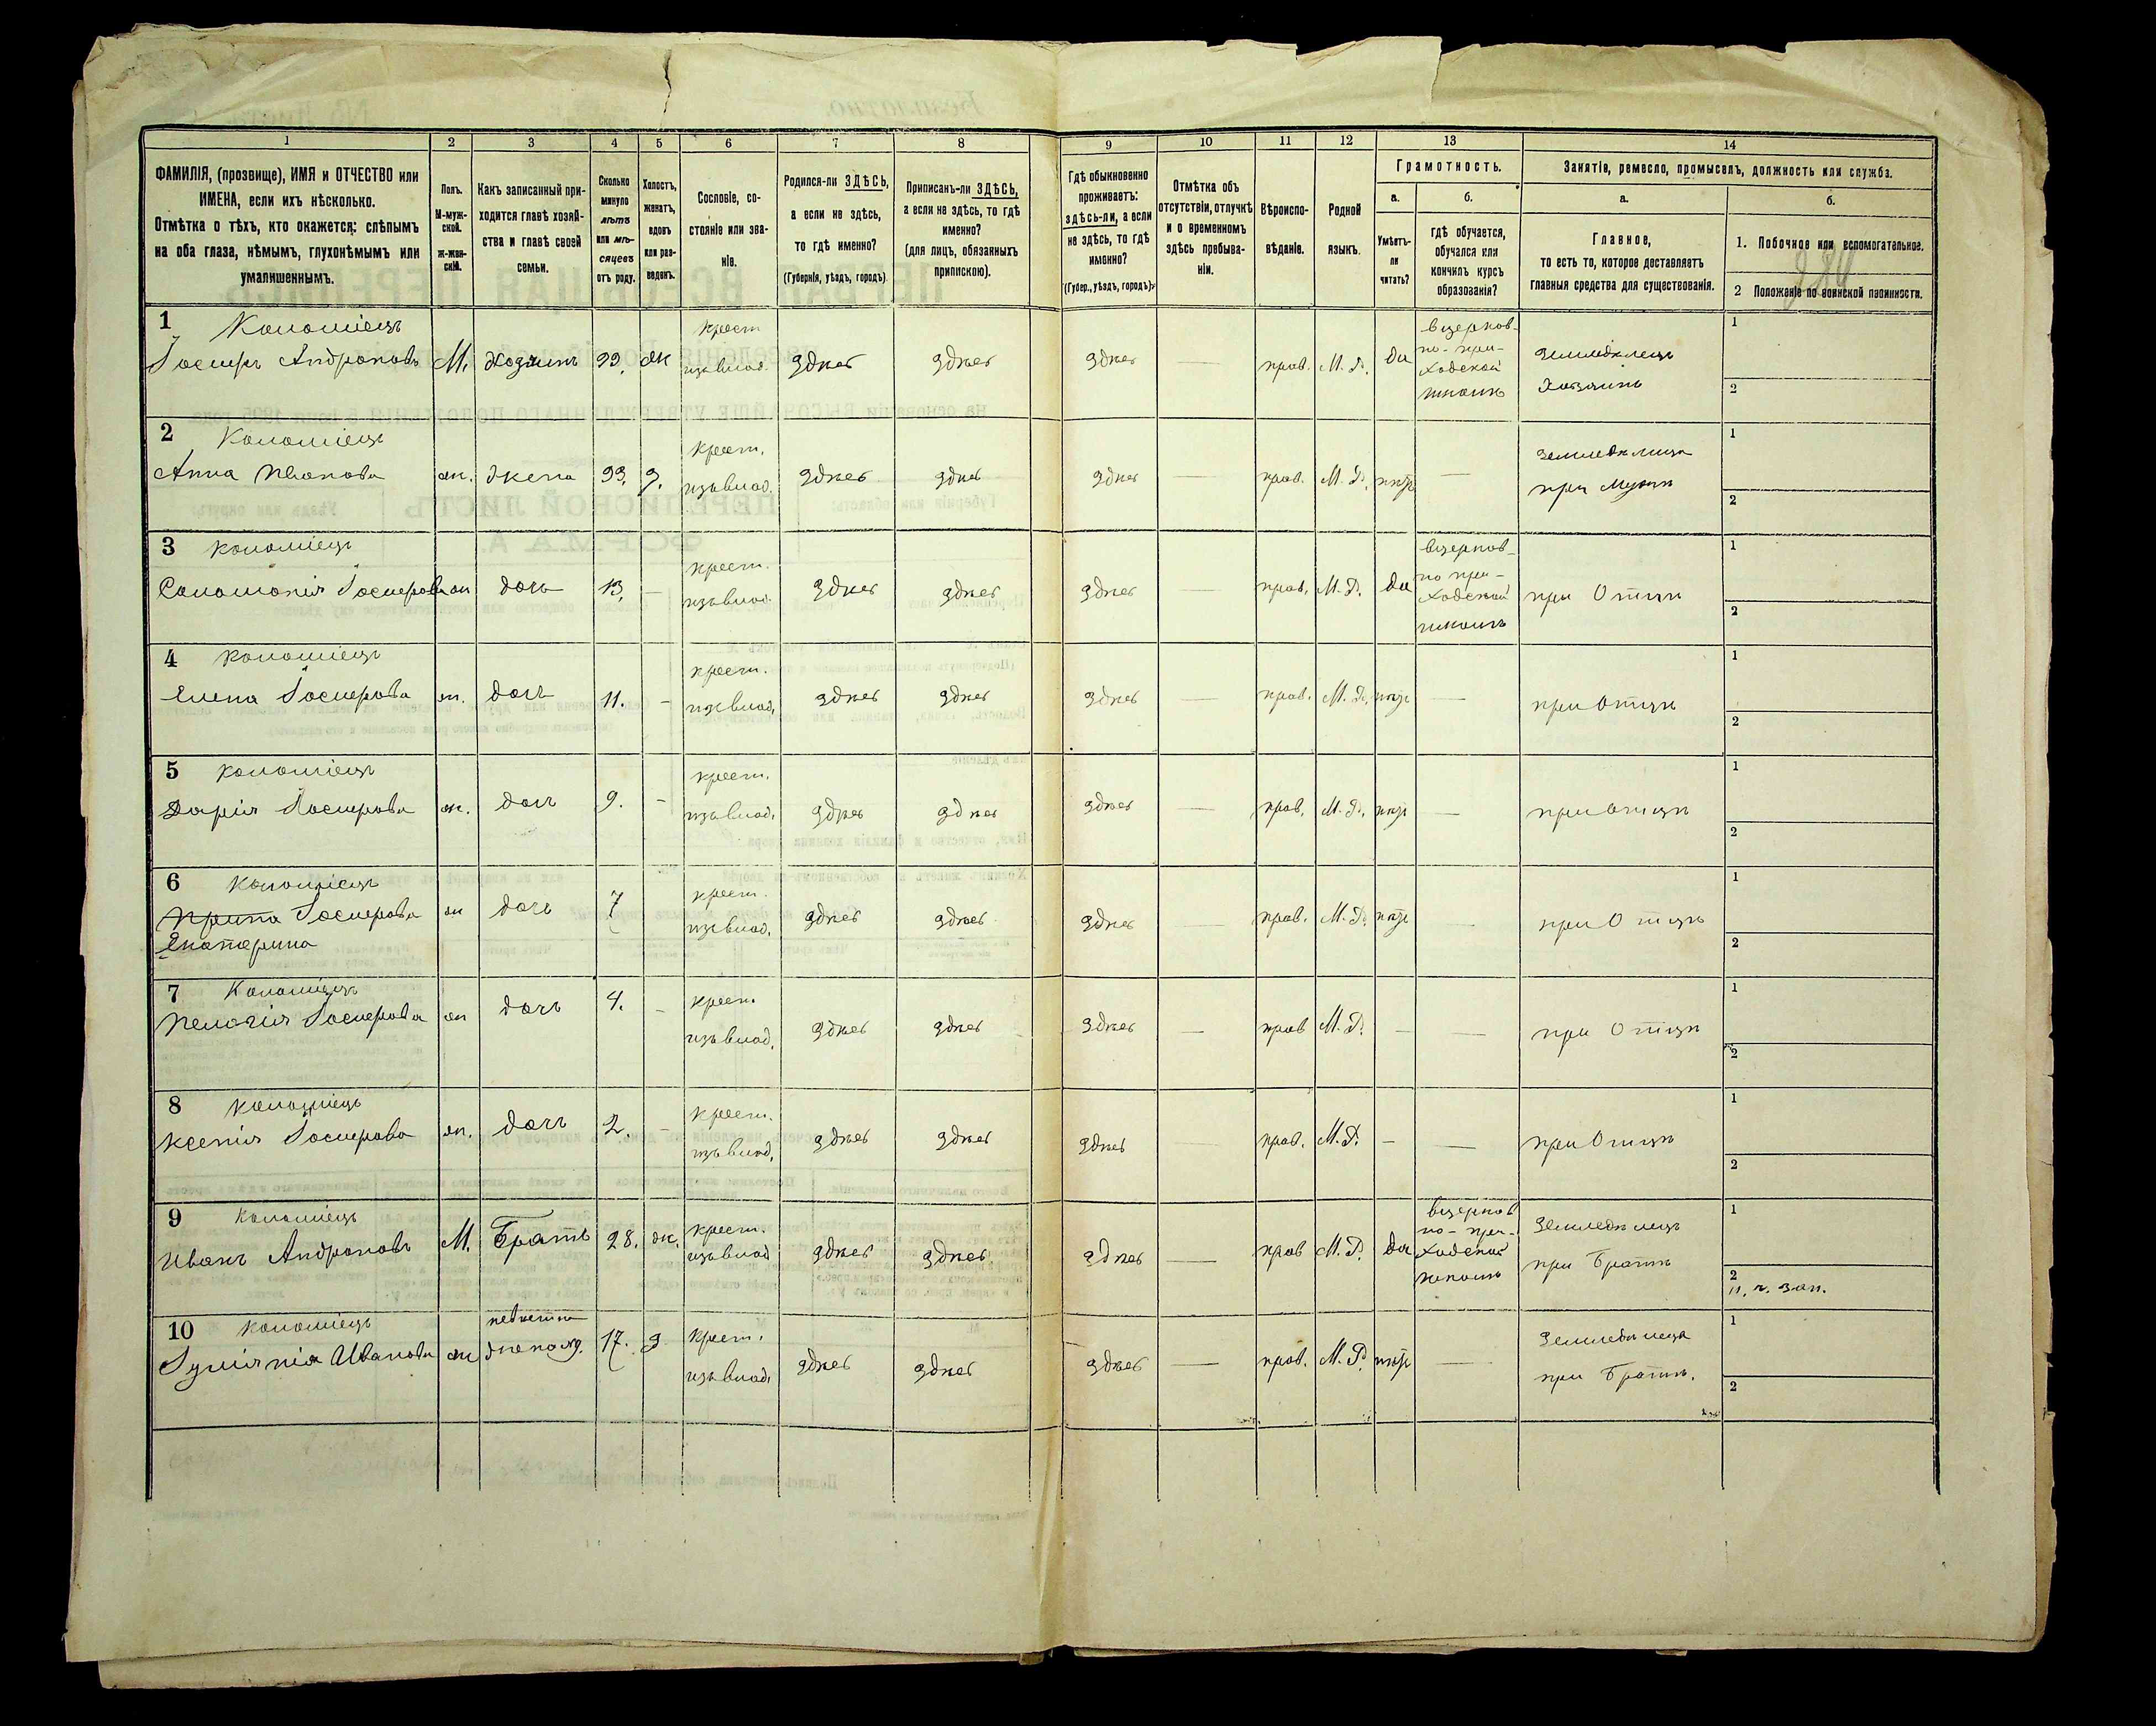 1 2 3 4 5 6 7 8 9 10 11 12 13 14
ФАМИЛІЯ, (прозвище), ИМЯ и ОТЧЕСТВО или
ИМЕНА, если ихъ нѣсколько.
Отмѣтка о тѣхъ, кто окажется: слѣпымъ
на оба глаза, нѣмымъ, глухонѣмымъ или
умалишеннымъ.
Полъ.
М-муж-
ской.
Ж-жен-
скій.
Какъ записанный при-
ходится главѣ хозяй-
ства и главѣ своей
семьи.
Сколько
минуло
лѣтъ
или мѣ-
сяцевъ
отъ роду.
Холостъ,
женатъ,
вдовъ
или раз-
веденъ.
Сословіе, со-
стояніе или зва-
ніе.
Родился-ли ЗДѢСЬ,
а если не здѣсь,
то гдѣ именно?
(Губернія, уѣздъ, городъ)
Приписанъ-ли ЗДѢСЬ,
а если не здѣсь, то гдѣ
именно?
(для лицъ, обязанныхъ
припискою).
Гдѣ обыкновенно
проживаетъ:
здѣсь-ли, а если
не здѣсь, то гдѣ
именно?
(Губер., уѣздъ, городъ)
Отмѣтка объ
отсутствіи, отлучкѣ
и о временномъ
здѣсь пребыва-
ніи.
Вѣроиспо-
вѣданіе.
Родной
языкъ.
Грамотность.
а.
Умѣетъ-
ли
читать?
б.
гдѣ обучается,
обучался или
кончилъ курсъ
образованія?
Занятіе, ремесло, промыселъ, должность или служба.
а.
Главное,
то есть то, которое доставляетъ
главныя средства для существованія.
б.
1. Побочное или вспомогательное.
2 Положеніе по воинской повинности.
1 Коломіецъ
Іосифъ Андроновъ М. Хозяинъ 39. ж
крест.
изъ влад.
здѣсь здѣсь здѣсь — прав. М. Р. да
въ церков-
но-при-
ходской
школѣ
Земледѣлецъ
Хозяинъ
1
2
2 Коломіецъ
Анна Иванова ж. жена 39. з.
крест.
изъ влад.
здѣсь здѣсь здѣсь — прав. М. Р. нѣтъ —
Земледѣлица
при Мужѣ
1
2
3 Коломіецъ
Соломонія Іосифова ж дочь 13. —
крест.
изъ влад.
здѣсь здѣсь здѣсь — прав. М. Р. да
въ церков-
но при-
ходской
школѣ
при Отцѣ
1
2
4 Коломіецъ
Елена Іосифова ж. дочь 11. -
крест.
изъ влад.
здѣсь здѣсь здѣсь — прав. М. Р. нѣтъ —
при Отцѣ
1
2
5 Коломіецъ
Дарія Іосифова ж. дочь 9. -
крест.
изъ влад.
здѣсь здѣсь здѣсь — прав. М. Р. нѣтъ —
при Отцѣ
1
2
6 Коломіецъ
Ирина Іосифова ж дочь 7
Екатерина
крест.
изъ влад.
здѣсь здѣсь здѣсь — прав. М. Р. нѣтъ —
при Отцѣ
1
2
7 Коломіецъ
Пелагія Іосифова ж дочь 4. -
крест.
изъ влад.
здѣсь здѣсь здѣсь — прав М. Р. — —
при Отцѣ
1
2
8 Коломіецъ
Ксенія Іосифова ж. дочь 2. -
крест.
изъ влад.
здѣсь здѣсь здѣсь — прав. М. Р. — —
при Отцѣ
1
2
9 Коломіецъ
Иванъ Андроновъ М. Братъ 28. ж.
крест.
изъ влад
здѣсь здѣсь здѣсь — прав М. Р. да
въ церков
но-при-
ходской
школѣ
Земледѣлецъ
при Братѣ
1
2
10 Коломіецъ
Иванова ж
невѣстка
17. з
крест.
изъ влад.
здѣсь здѣсь здѣсь — прав. М. Р. нѣтъ —
Земледѣлица
при Братѣ.
1
2